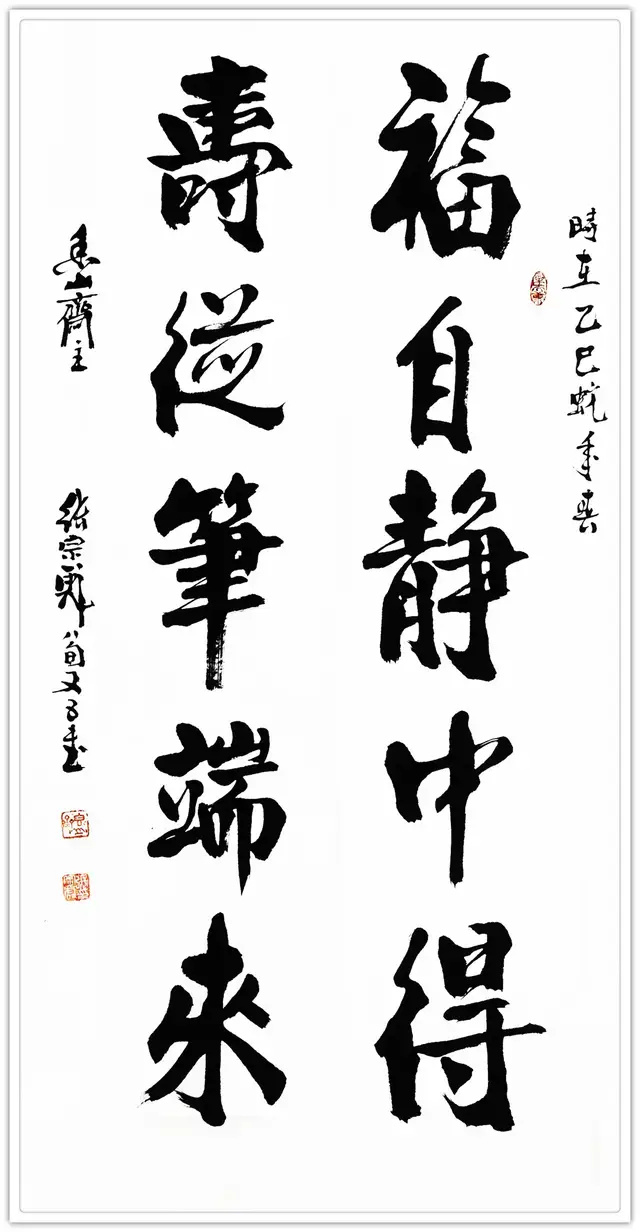 時在乙巳蛇年春
福自静中得
壽從筆端来
山齋主
張宗彝八旬又五書